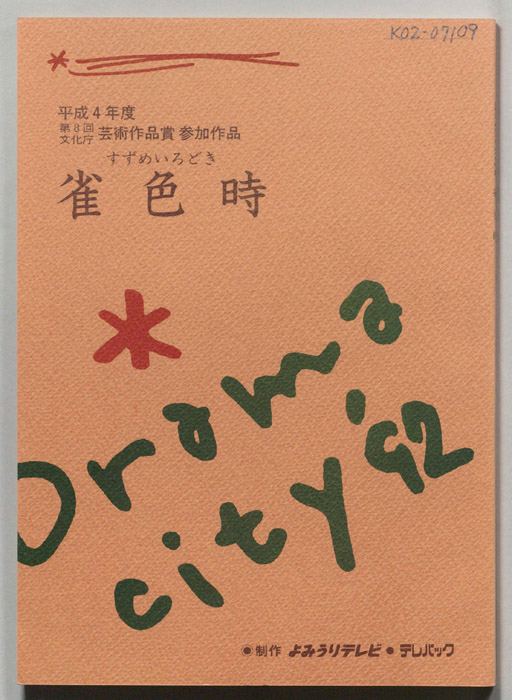 K02-07109
平成4年度
第8回
文化庁 芸術作品賞 参加作品
すずめいろどき
雀色時
Drama
city '92
●制作 よみうりテレビ ● テレパック